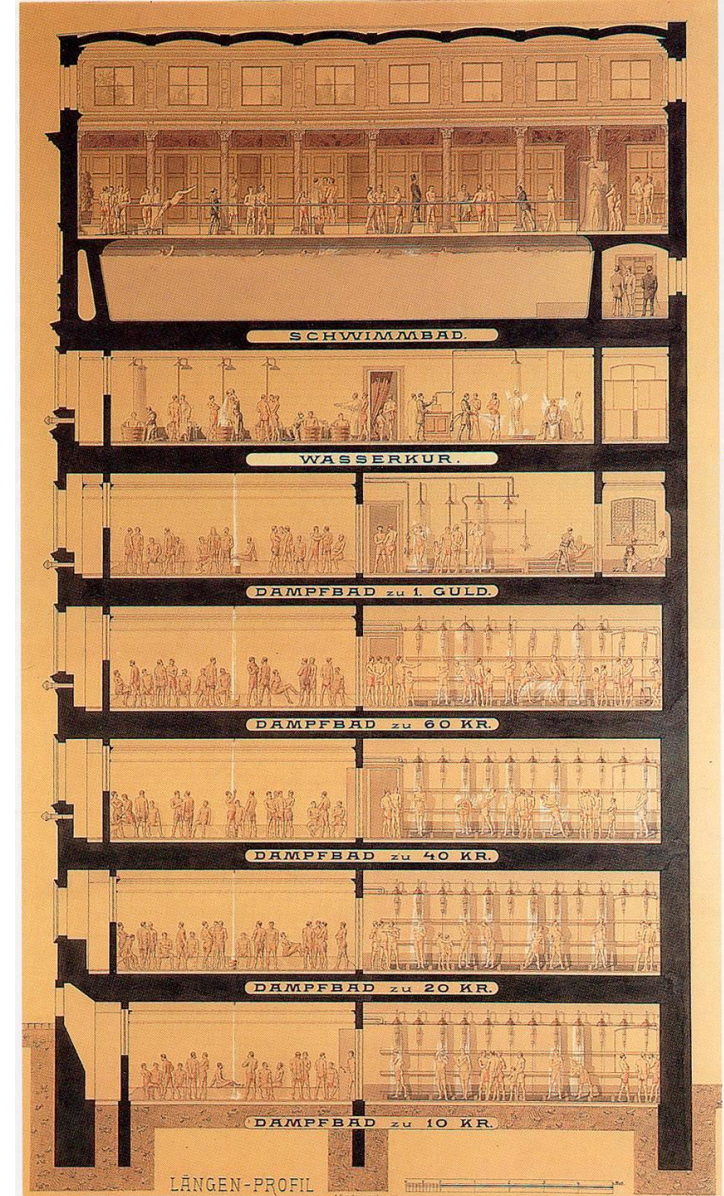 SCHWIMMBAD.
WASSERKUR.
DAMPFBAD zu 1. GULD.
DAMPFBAD zu 60 KR.
DAMPFBAD zu 40 KR.
DAMPFBAD zu 20 KR.
DAMPFBAD zu 10 KR.
LÄNGEN-PROFIL